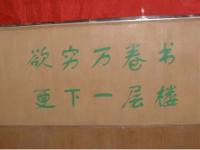 欲穷万卷书
更下一层楼